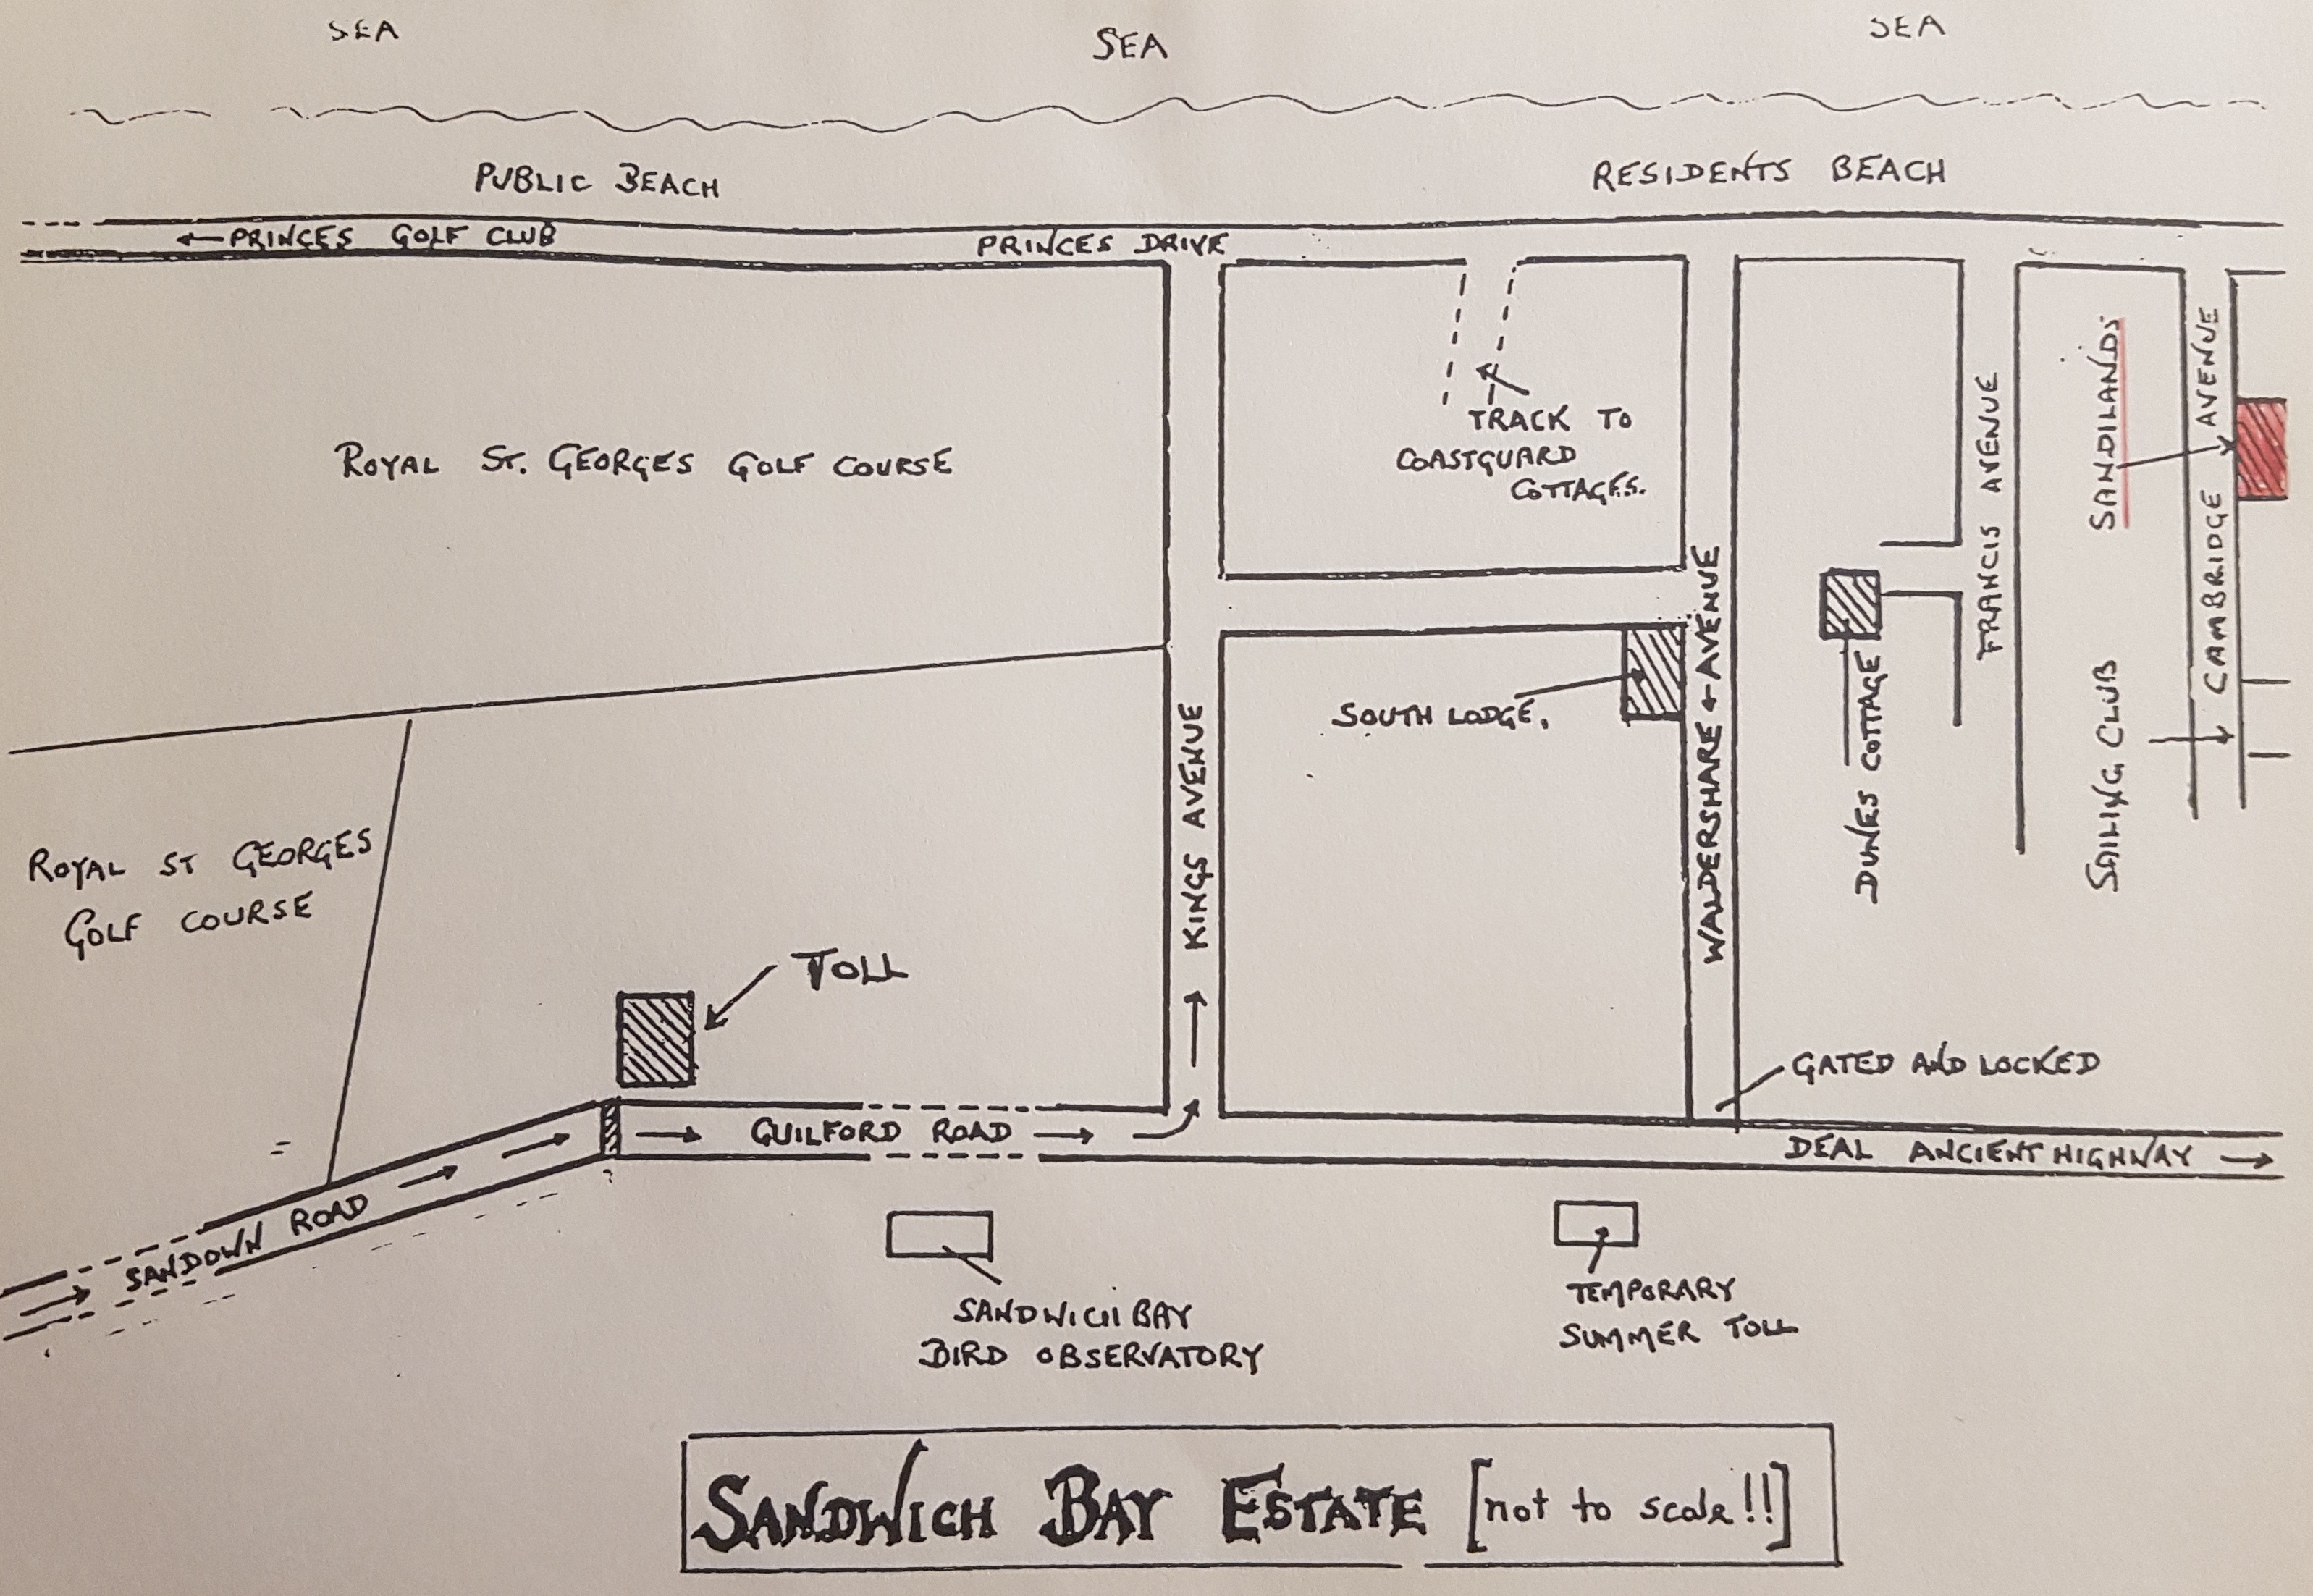 SEA
SEA
SEA
PUBLIC BEACH
RESIDENTS BEACH
←PRINCES GOLF CLUB
PRINCES DRIVE
TRACK TO
COASTGUARD
COTTAGES.
ROYAL ST. GEORGES GOLF COURSE
SANDILANDS
CAMBRIDGE AVENUE
FRANCIS AVENUE
SOUTH LODGE.
WALDERSHARE + AVENUE
DUNES COTTAGE
SAILING CLUB
KINGS AVENUE
ROYAL ST GEORGES
GOLF COURSE
TOLL
GATED AND LOCKED
GUILFORD ROAD
DEAL ANCIENT HIGHWAY →
SANDOWN ROAD
SANDWICH BAY
BIRD OBSERVATORY
TEMPORARY
SUMMER TOLL
SANDWICH BAY ESTATE [not to scale!!]